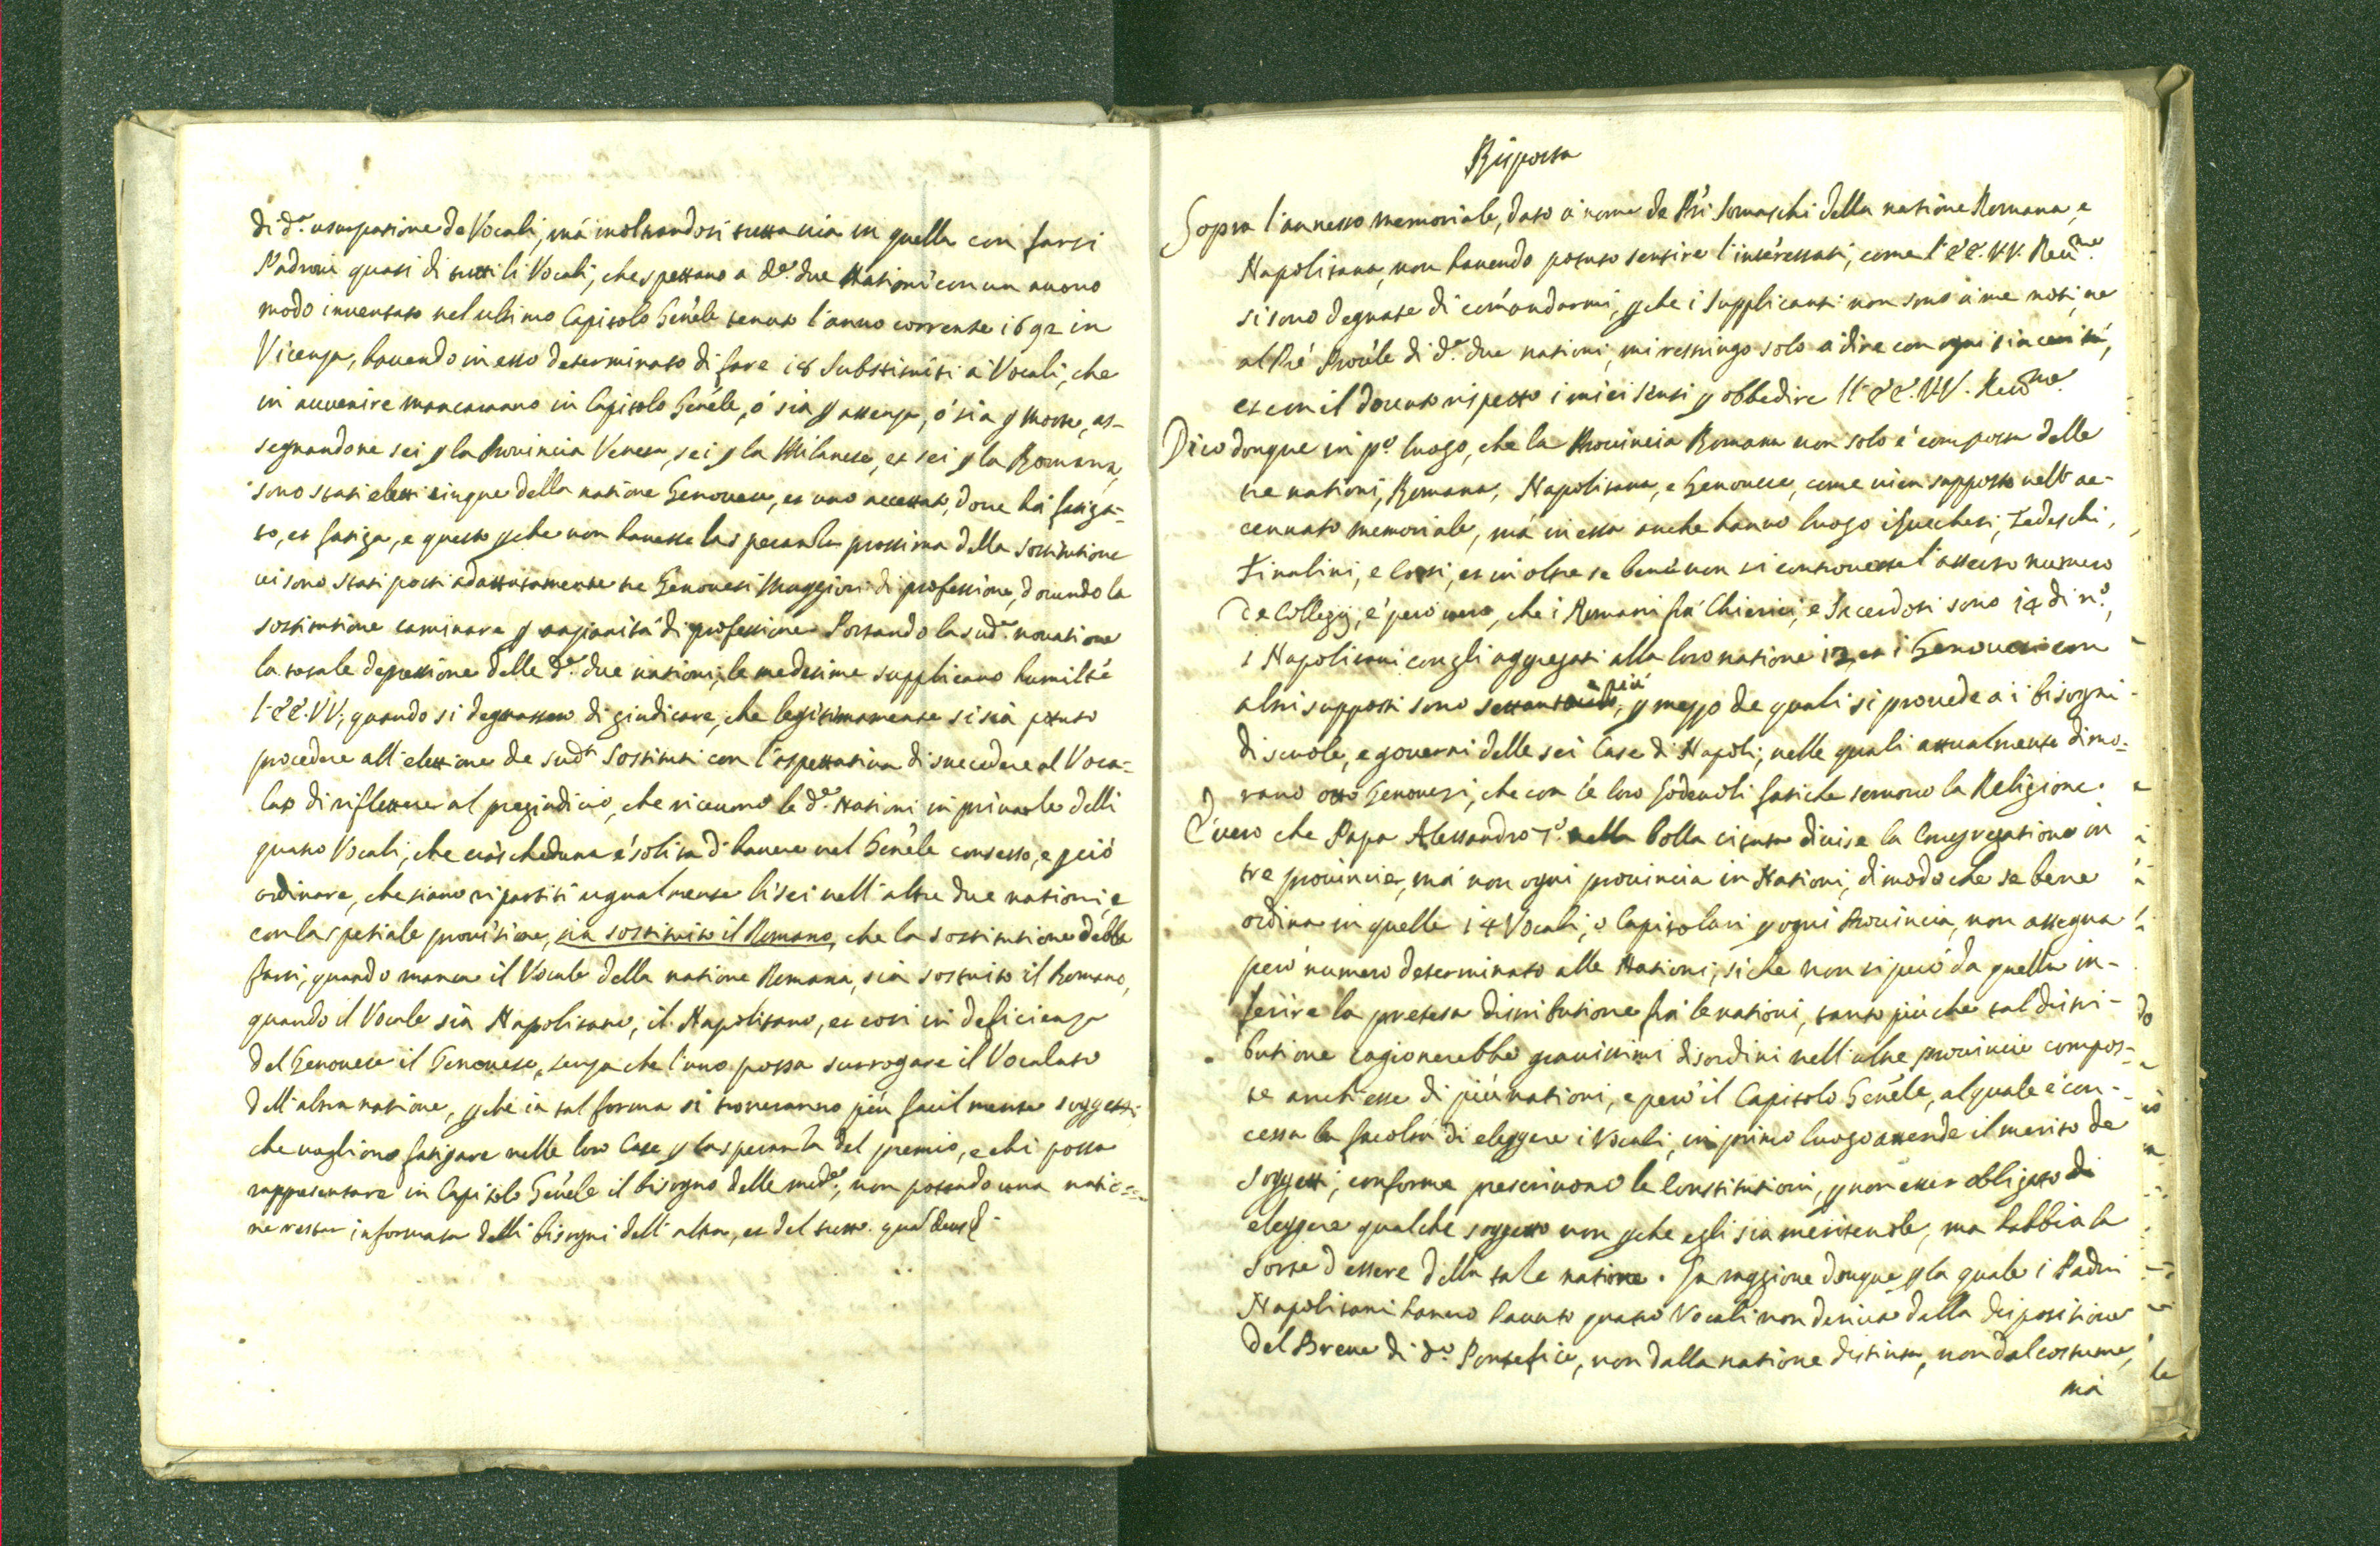 di d.ª usurpatione de Vocali, mà inoltrandosi tuttavia in quella con farsi
Padroni quasi di tutti li Vocali, che spettano a d.e due Nationi con un nuovo
modo inventato nel ultimo Capitolo Gen̄ale tenuto l'anno corrente 1692 in
Vicenza, havendo in esso determinato di fare 18 Substituiti a Vocali, che
in avvenire mancaranno in Capitolo Gen̄ale, ò sia ꝑ assenza, ò sia ꝑ morte, as-
segnandone sei ꝑ la Provincia Veneta, sei ꝑ la Milanese, et sei ꝑ la Romana,
sono stati eletti cinque della natione Genovese, et uno accettato, dove hà fatiga-
to, et fatiga, e questo ꝑche non havesse la speranza prossima della sostitutione
vi sono stati posti adattatamente tre Genovesi Maggiori di professione, dovendo la
sostitutione caminare ꝑ anzianità di professione. Portando la sud.ª novatione
la totale depressione delle d.e due nationi, le medesime supplicano humilte
l'EE. VV., quando si degnassero di giudicare, che legitimamente si sia potuto
procedere all'elettione de sud.ti Sostituti con l'aspettativa di succedere al Voca-
lato di riflettere al pregiudicio, che ricevono le d.e Nationi in privarle delli
quatro Vocali, che ciascheduna è solita d'havere nel Gen̄ale consesso, e ꝑciò
ordinare, che siano ripartiti ugualmente li sei nell'altre due nationi, e
con la spetiale provisione, sia sostituito il Romano, che la sostitutione debba
farsi, quando manca il Vocale della natione Romana, sia sostituito il Romano,
quando il Vocale sia Napolitano, il Napolitano, et così in deficienza
del Genovese il Genovese, senza che l'uno possa surrogare il Vocalato
dell'altra natione, ꝑche in tal forma si troveranno più facilmente soggetti,
che vogliono fatigare nelle loro Case ꝑ la speranza del premio, e chi possa
rappresentare in Capitolo Gen̄ale il bisogno delle med.e, non potendo una natio-
ne restar informata delli bisogni dell'altra, et del tutto. quā Deus &

Risposta
Sopra l'annesso memoriale, dato à nome de Pr̄i Somaschi della natione Romana, e
Napolitana, non havendo potuto sentire l'interessati, come l'EE. VV. Rev̄me
si sono degnate di com̄andarmi, ꝑche i supplicanti non sono à me noti, ne
al Pr̄e Proc̄le di d.e due nationi, mi restringo solo a dire con ogni sincerità,
et con il dovuto rispetto i miei sensi ꝑ obbedire ll'EE. VV. Rev̄me.
Dico donque in p.º luogo, che la Provincia Romana non solo è composta delle
tre nationi, Romana, Napolitana, e Genovese, come vien supposto nell'ac-
cennato memoriale, mà in essa anche hanno luogo i Lucchesi, Tedeschi,
Finalini, e Corsi, et in oltre se bene non si controverte l'asserto numero
de Collegij, è però vero, che i Romani frà Chierici, e Sacerdoti sono 14 di n.º,
i Napolitani con gli aggregati alla loro natione 12, et i Genovesi con
altri supposti sono e più, ꝑ mezzo de quali si provede a i bisogni
di scuole, e governi delle sei Case di Napoli, nelle quali attualmente dimo-
rano otto Genovesi, che con le loro lodevoli fatiche servono la Religione.
È vero che Papa Alessandro 7.º nella bolla citata divise la Congregatione in
tre provincie, mà non ogni provincia in Nationi, di modo che se bene
ordina in quelle 14 Vocali, o Capitolari ꝑ ogni Provincia, non assegna
però numero determinato alle Nationi, si che non si può da quella in-
ferire la pretesa distributione frà le nationi, tanto più che tal distri-
butione cagionerebbe gravissimi disordini nell'altre provincie compos-
te anch'esse di più nationi, e però il Capitolo Gen̄ale, al quale è con-
cessa la facoltà di eleggere i Vocali, in primo luogo attende il merito de
Soggetti, conforme prescrivono le Constitutioni, ꝑ non esser obligato di
eleggere qualche soggetto non ꝑche egli sia meritevole, ma habbia la
sorte d'essere della tale natione. La raggione donque ꝑ la quale i Padri
Napolitani hanno havuto quatro Vocali non deriva dalla dispositione
del Breve di d.º Pontefice, non dalla natione distinta, non dal costume,
mà